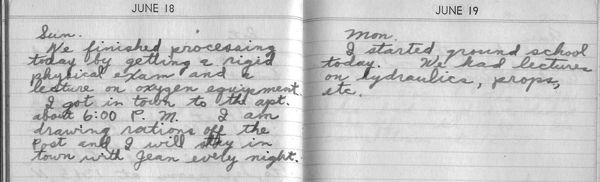 JUNE 18
Sun.
We finished processing
today by getting a rigid
physical exam and a
lecture on oxygen equipment.
I got in town to the apt.
about 6:00 P. M. I am
drawing rations off the
Post and I will stay in
town with Jean every night.
JUNE 19
Mon.
I started ground school
today. We had lectures
on hydraulics, props,
etc.